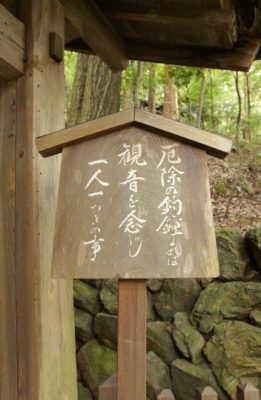 厄除の釣鐘は
観音を念じ
一人一つきの事